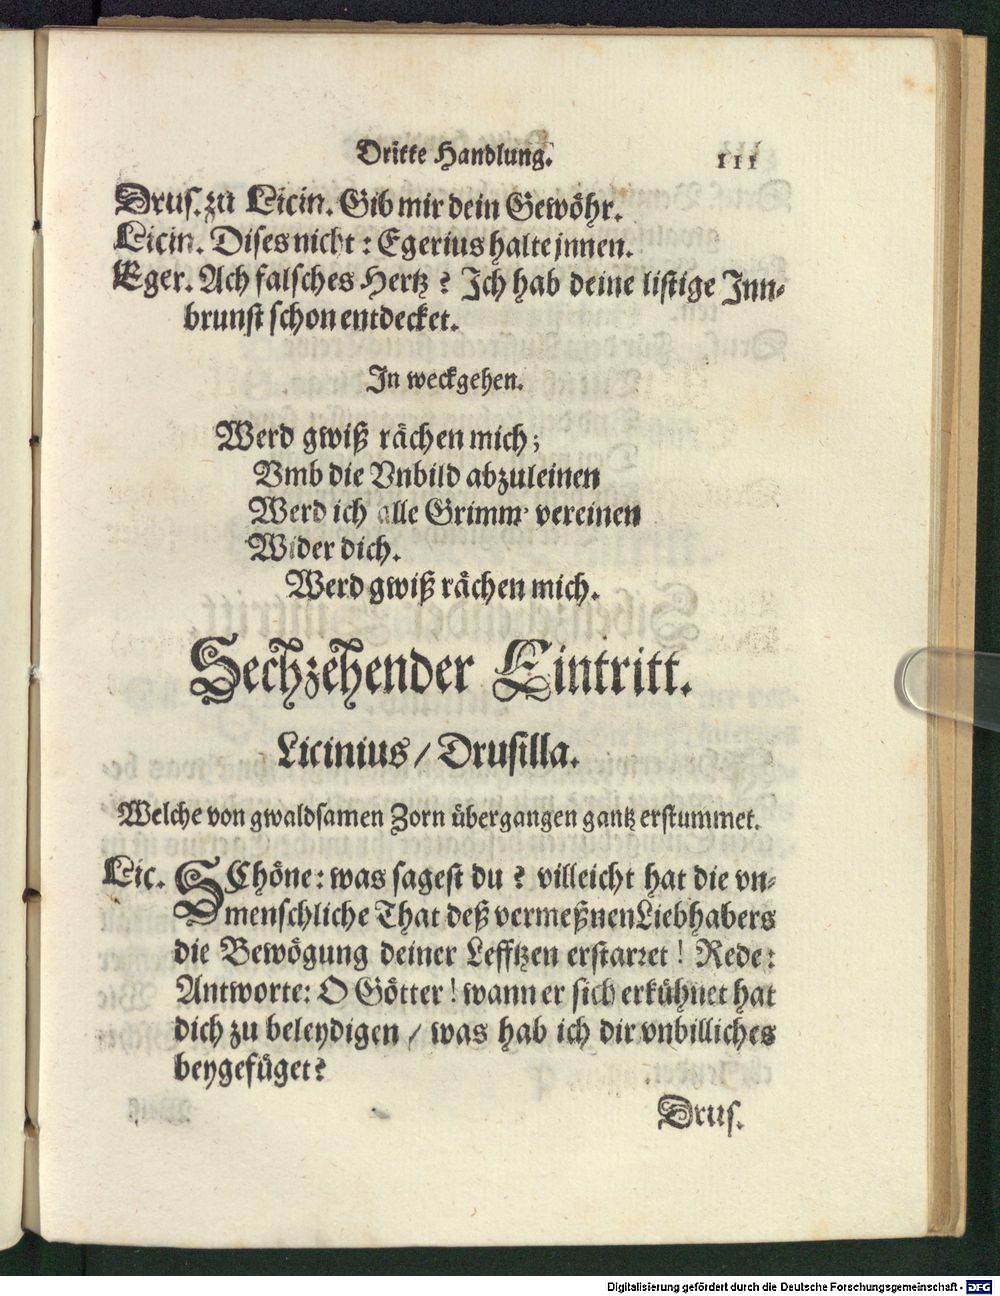 Dritte Handlung. 111
Drus. zu Licin. Gib mir dein Gewöhr.
Licin. Dises nicht: Egerius halte jnnen.
Eger. Ach falsches Hertz? Ich hab deine listige Inn-
brunst schon entdecket.
In weckgehen.
Werd gwiß rächen mich;
Vmb die Vnbild abzuleinen
Werd ich alle Grimm' vereinen
Wider dich.
Werd gwiß rächen mich.
Sechzehender Eintritt.
Licinius / Drusilla.
Welche von gwaldsamen Zorn übergangen gantz erstummet.
Lic. SChöne: was sagest du? villeicht hat die vn-
menschliche That deß vermeßnen Liebhabers
die Bewögung deiner Lefftzen erstarret! Rede:
Antworte: O Götter! wann er sich erkühnet hat
dich zu beleydigen / was hab ich dir vnbilliches
beygefüget?
Drus.
Digitalisierung gefördert durch die Deutsche Forschungsgemeinschaft - DFG